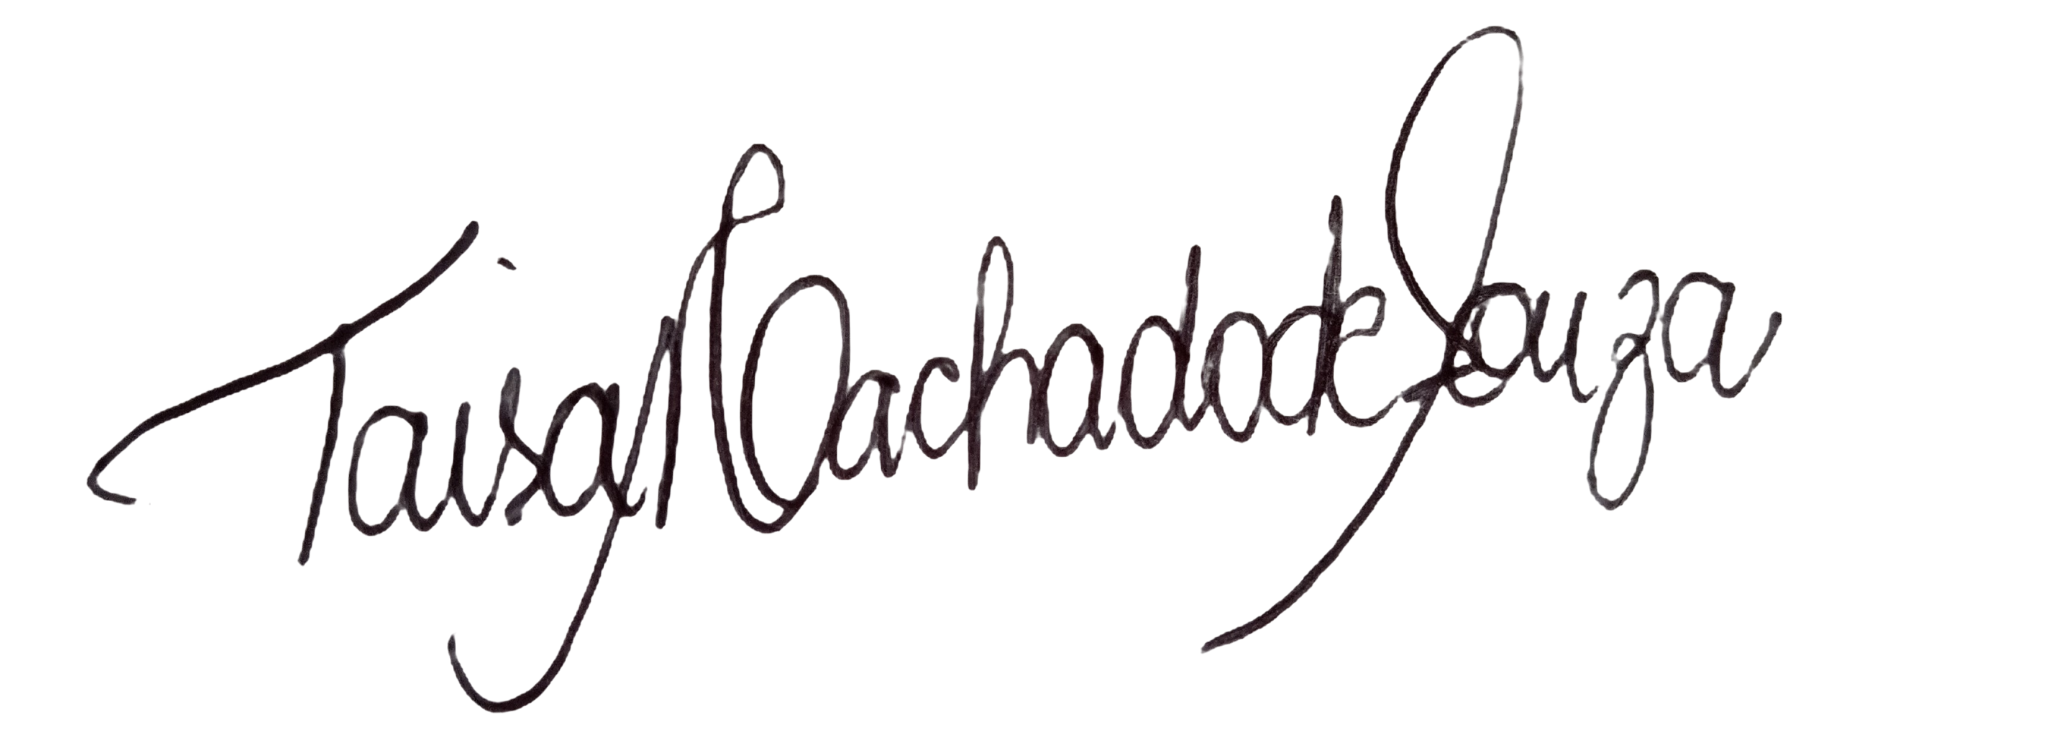 Taisa Machado de Souza